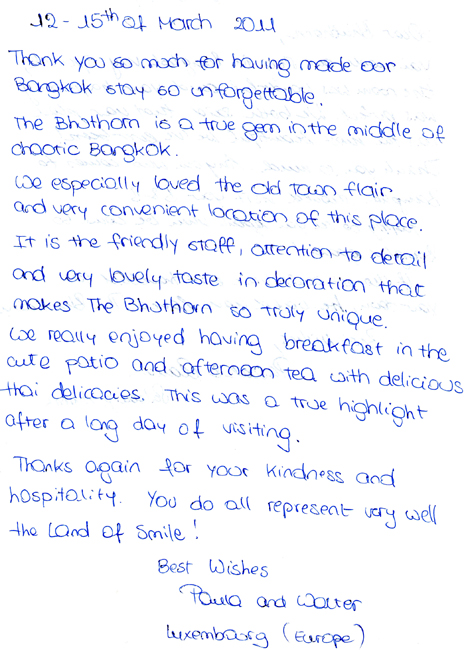 12 - 15th of March 2011
Thank you so much for having made our
Bangkok stay so unforgettable.
The Bhuthorn is a true gem in the middle of
chaotic Bangkok.
We especially loved the old town flair
and very convenient location of this place.
It is the friendly staff, attention to detail
and very lovely taste in decoration that
makes The Bhuthorn so truly unique.
We really enjoyed having breakfast in the
cute patio and afternoon tea with delicious
thai delicacies. This was a true highlight
after a long day of visiting.
Thanks again for your kindness and
hospitality. You do all represent very well
the Land of Smile!
Best Wishes
Paula and Walter
Luxembourg (Europe)